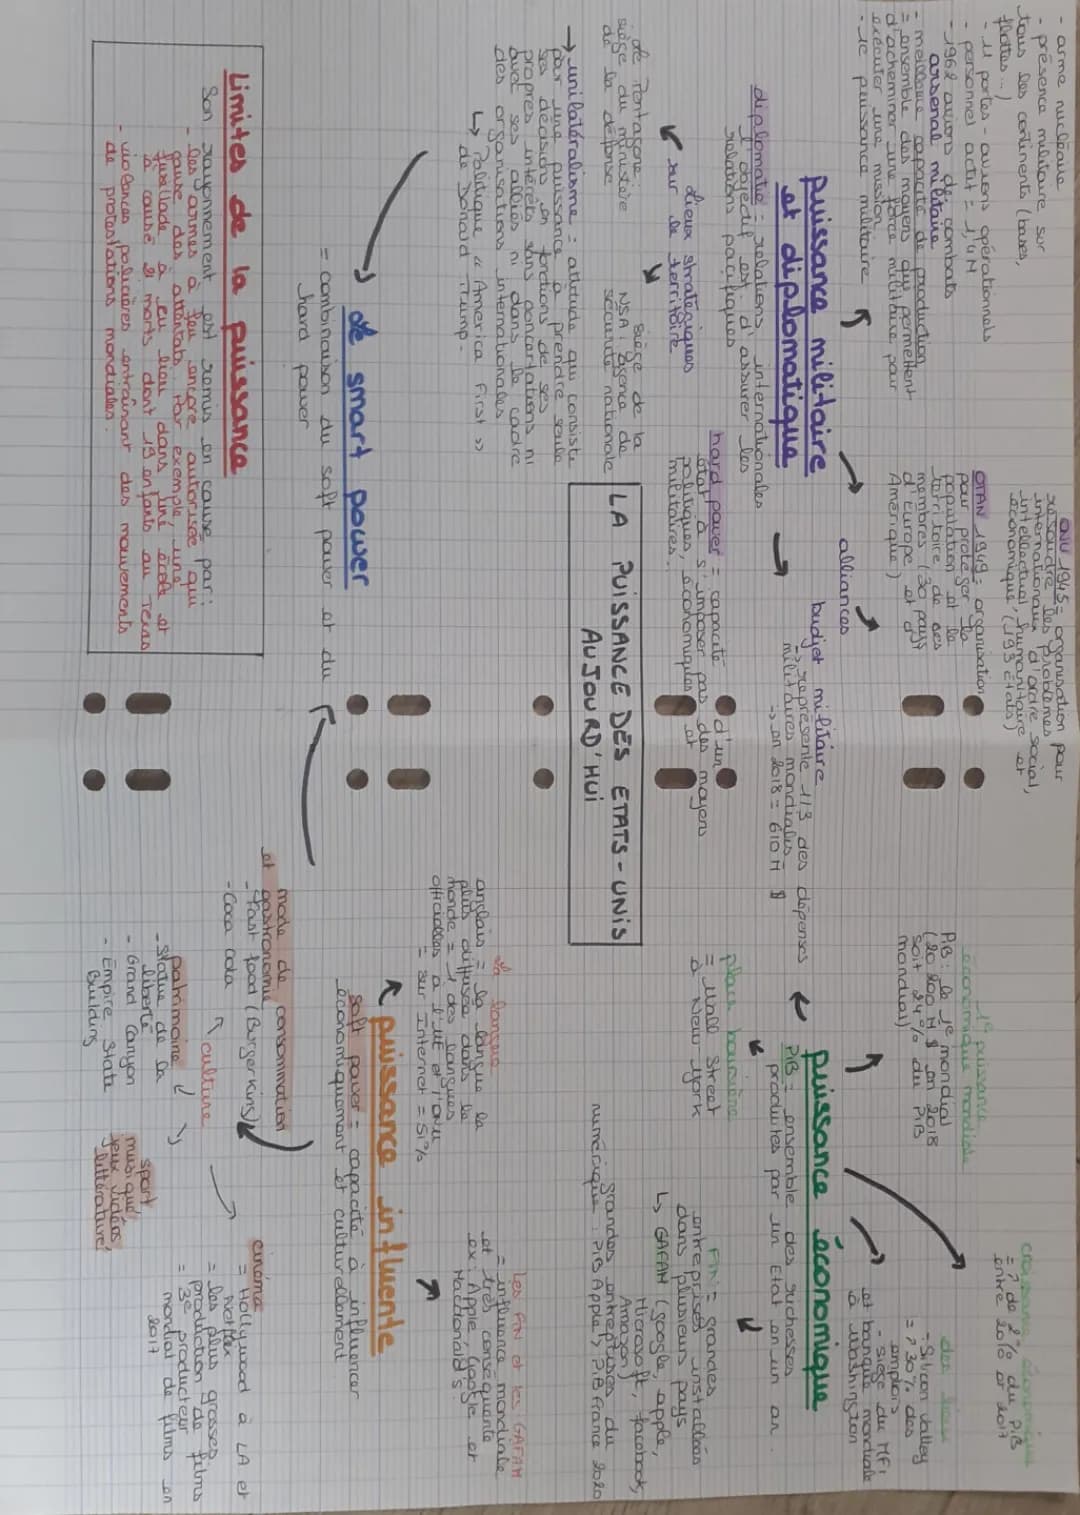 - arme nucléaire
- présence militaire sur
tous les continents (bases,
flottes...)
- 11 portes-avions opérationnels
- personnel actif = 1,4M
- 1962 avions de combats
arsenal militaire
- meilleure capacité de production
= ensemble des moyens qui permettent
d'acheminer une force militaire pour
exécuter une mission
- 1e puissance militaire
ONU 1945 = organisation pour
résoudre les problèmes
internationaux d'ordre social,
intellectuel, humanitaire et
économique (193 États)
OTAN 1949 = organisation
pour protéger la
population et le
territoire de ses
membres (30 pays
d'Europe et d'
Amérique)
alliances
puissance militaire
et diplomatique
budget militaire
→ représente 1/3 des dépenses
militaires mondiales
→ en 2018 = 610 M $
diplomatie = relations internationales
l'objectif est d'assurer les
relations pacifiques
hard power = capacité d'un
état à s'imposer par des moyens
politiques, économiques et
militaires.
Lieux stratégiques
sur le territoire
Le Pentagone :
siège du ministère
de la défense
siège de la
NSA : agence de
sécurité nationale
→ unilatéralisme = attitude qui consiste
pour une puissance à prendre seule
ses décisions en fonctions de ses
propres intérêts sans concertations ni
avec ses alliés ni dans le cadre
des organisations internationales
↳ Politique « America First »
de Donald Trump.
LA PUISSANCE DES ETATS-UNIS
AUJOURD'HUI
1e puissance
économique mondiale
PIB : le 1e mondial
(20 200 M $ en 2018
soit 24% du PIB
mondial)
croissance économique
= ↗ de 2% du PIB
entre 2016 et 2017
des lieux
= Silicon Valley
= ↗ 30% des
emplois
- siège du MFI
et banque mondiale
à Washington
puissance économique
PIB = ensemble des richesses
produites par un Etat en un an.
place boursière
= Wall Street
à New York
FTN = grandes
entreprises installées
dans plusieurs pays
↳ GAFAM (google, apple,
Microsoft, facebook,
Amazon)
grandes entreprises du
numérique. PIB Apple > PIB France 2020
La langue
anglais = la langue la
plus diffusée dans le
monde = 1 des langues
officielles à l'UE et l'ONU
= sur Internet = 51%
Les FTN et les GAFAM
= influence mondiale
et très conséquente
ex : Apple, Google et
MacDonald's
puissance influente
soft power = capacité à influencer
économiquement et culturellement
le smart power
= combinaison du soft power et du
hard power
mode de consommation
et gastronomie
- Fast food (Burger Kins)
- Coca cola
culture
cinéma
= Hollywood à LA et
Netflix
= les plus grosses
production de films
= 3e producteur
mondial de films en
2017
patrimoine
- Statue de la
liberté
- Grand Canyon
- Empire State
Building
sport
musique
jeux vidéos
littérature
Limites de la puissance
Son rayonnement est remis en cause par :
- les armes à feu encore autorisée qui
cause des attentats. Par exemple, une
fusillade à eu lieu dans une école et
à causé 21 morts dont 19 enfants au Texas
- violences policières entraînant des mouvements
de protestations mondiales.